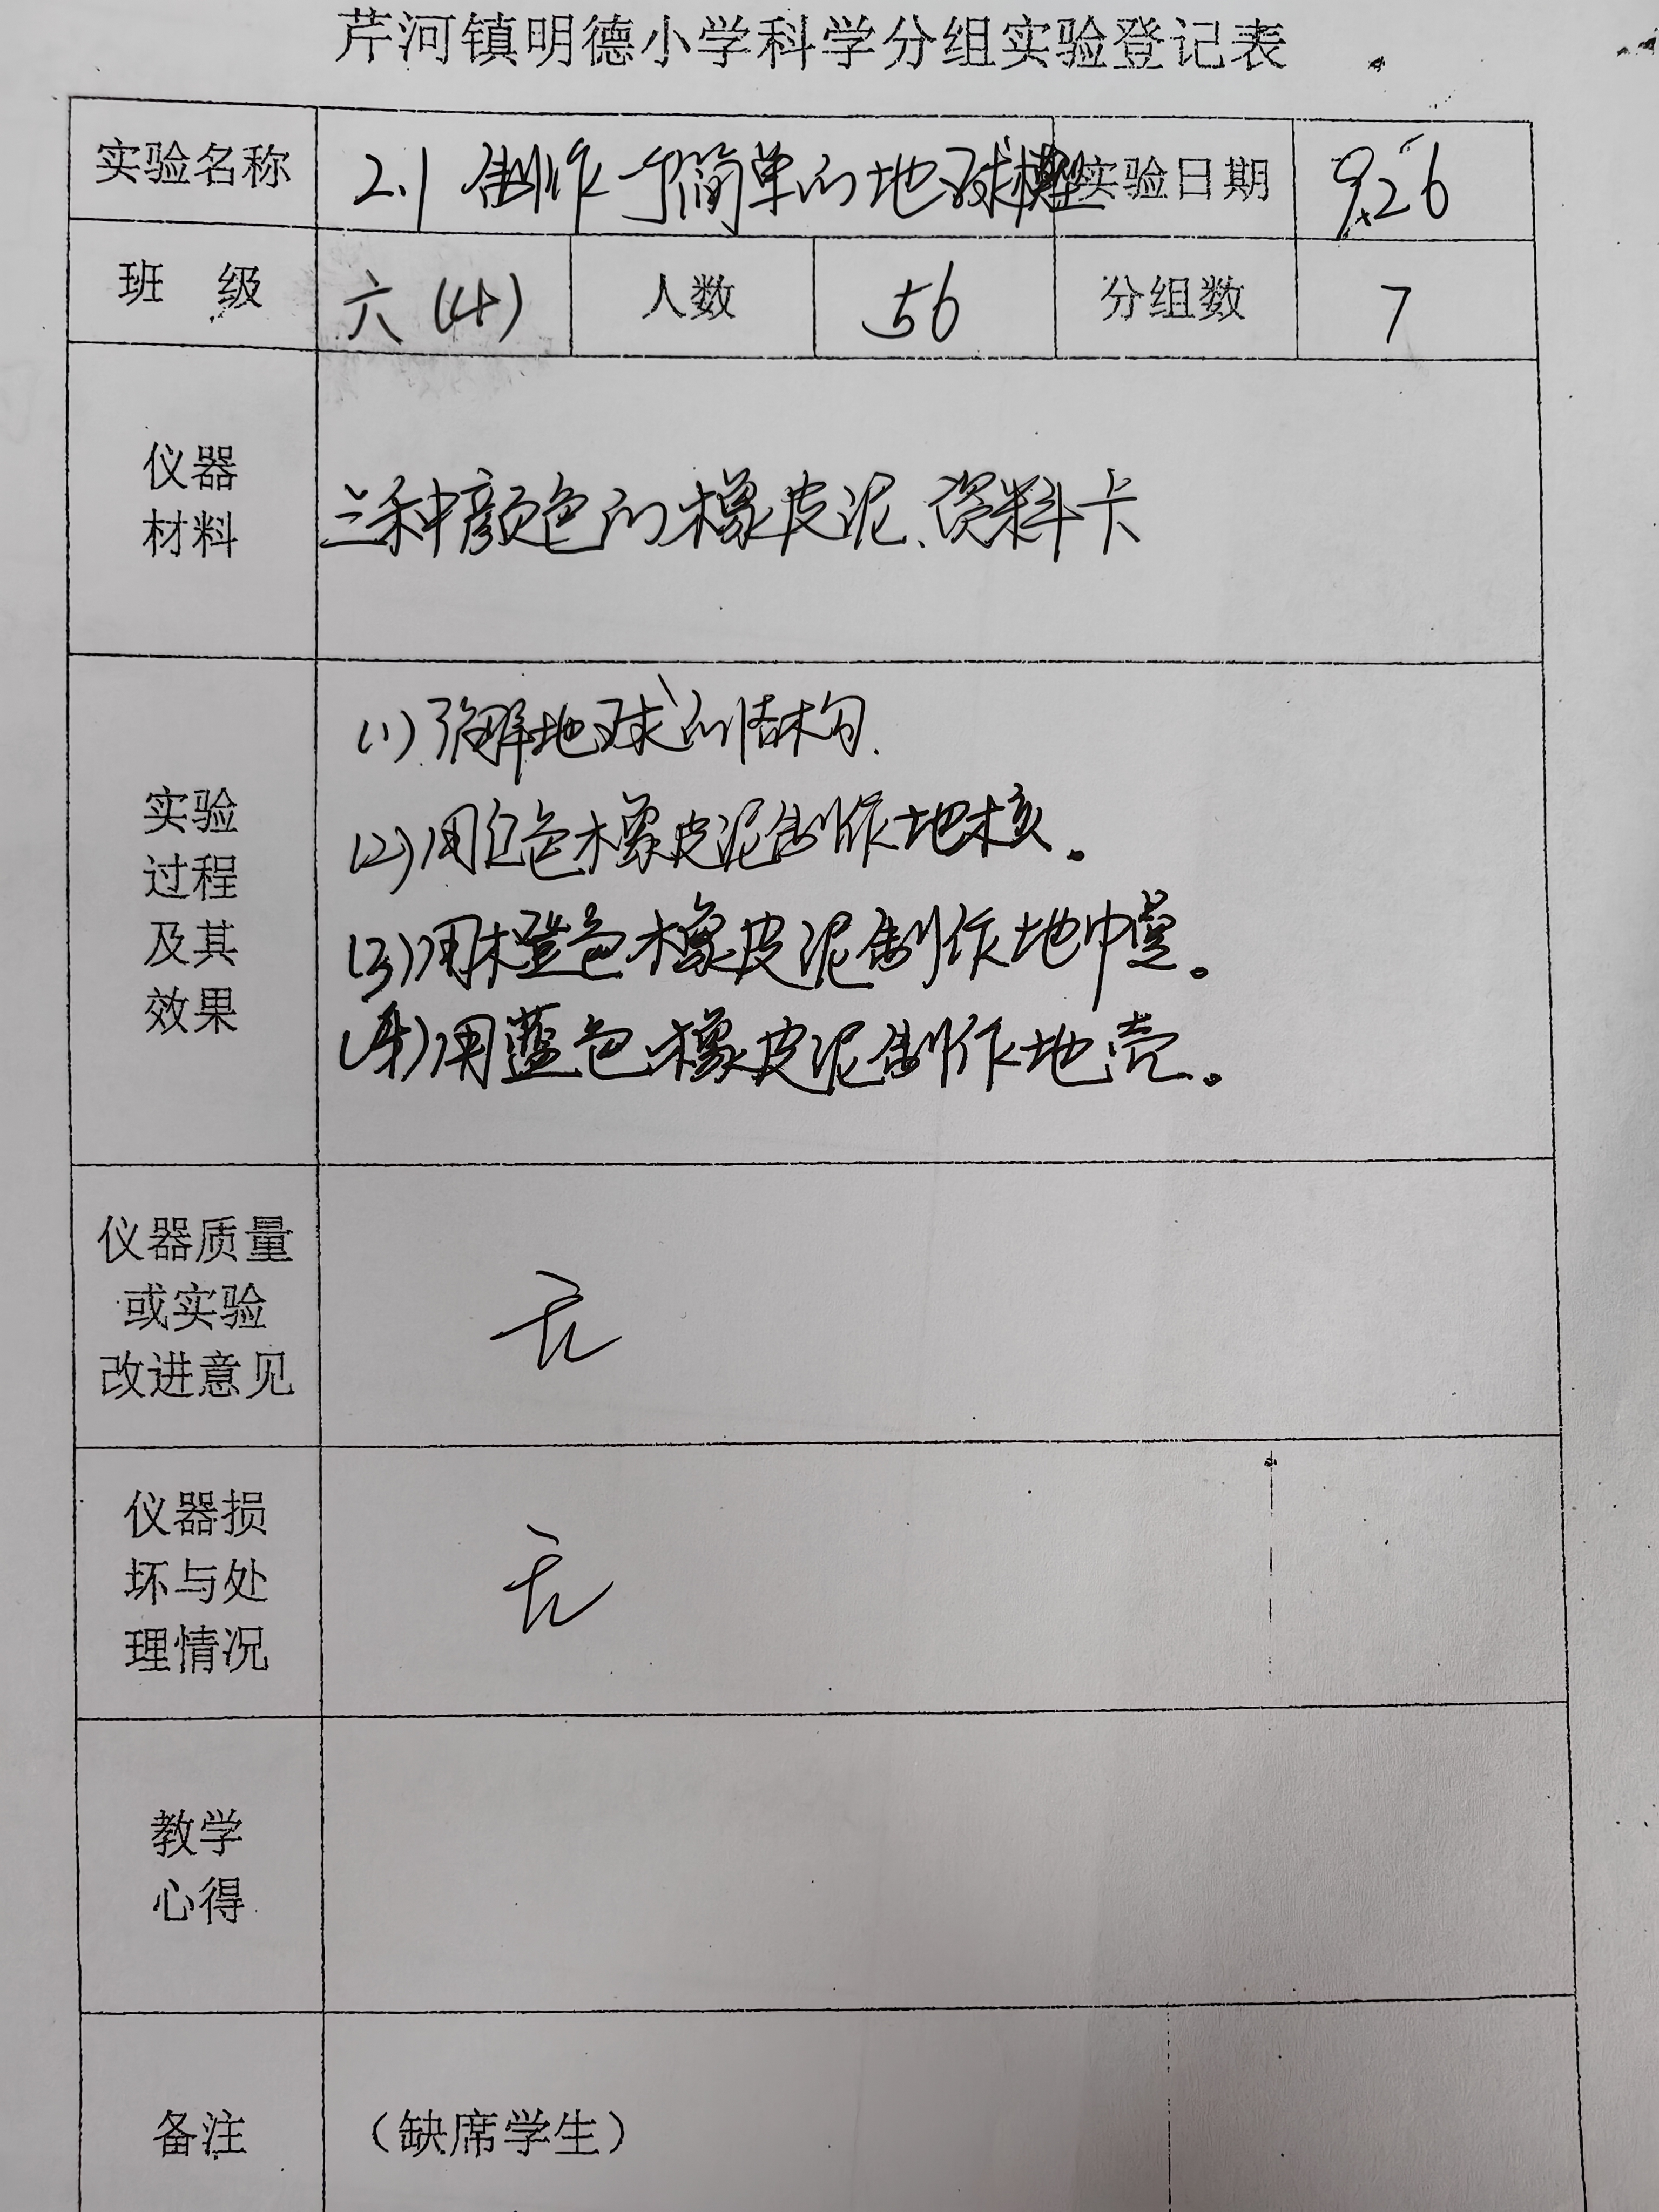 芹河镇明德小学科学分组实验登记表
实验名称 2.1 制作一个简单的地球模型 实验日期 9.26
班 级 六(4) 人数 56 分组数 7
仪器
材料
三种颜色的橡皮泥、资料卡
实验
过程
及其
效果
(1)了解地球的结构.
(2)用红色橡皮泥制作地核。
(3)用橙色橡皮泥制作地幔。
(4)用蓝色橡皮泥制作地壳。
仪器质量
或实验
改进意见
无
仪器损
坏与处
理情况
无
教学
心得
备注 (缺席学生)